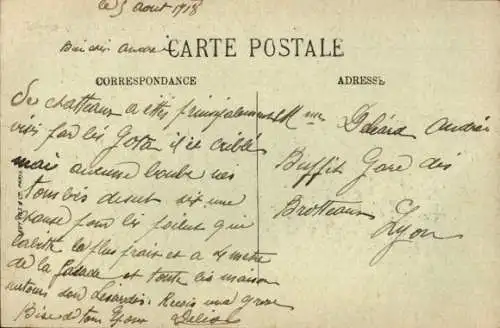 le 5 aout 1918
Bien cher André
CARTE POSTALE
CORRESPONDANCE
ADRESSE
Se chatteaux a ettes principalement
visés par les Gotas il ie criblé
mai aucune bombe nes
tombés desut dix une
chause pour les poilut que
labite le plus frais et a 4 metre
de la fasade et toute les maison
autours den Lésardés. Recois une grose
Bise de ton Epoux
Mme Deléard André
Buffet Gare des
Brotteaux
Lyon